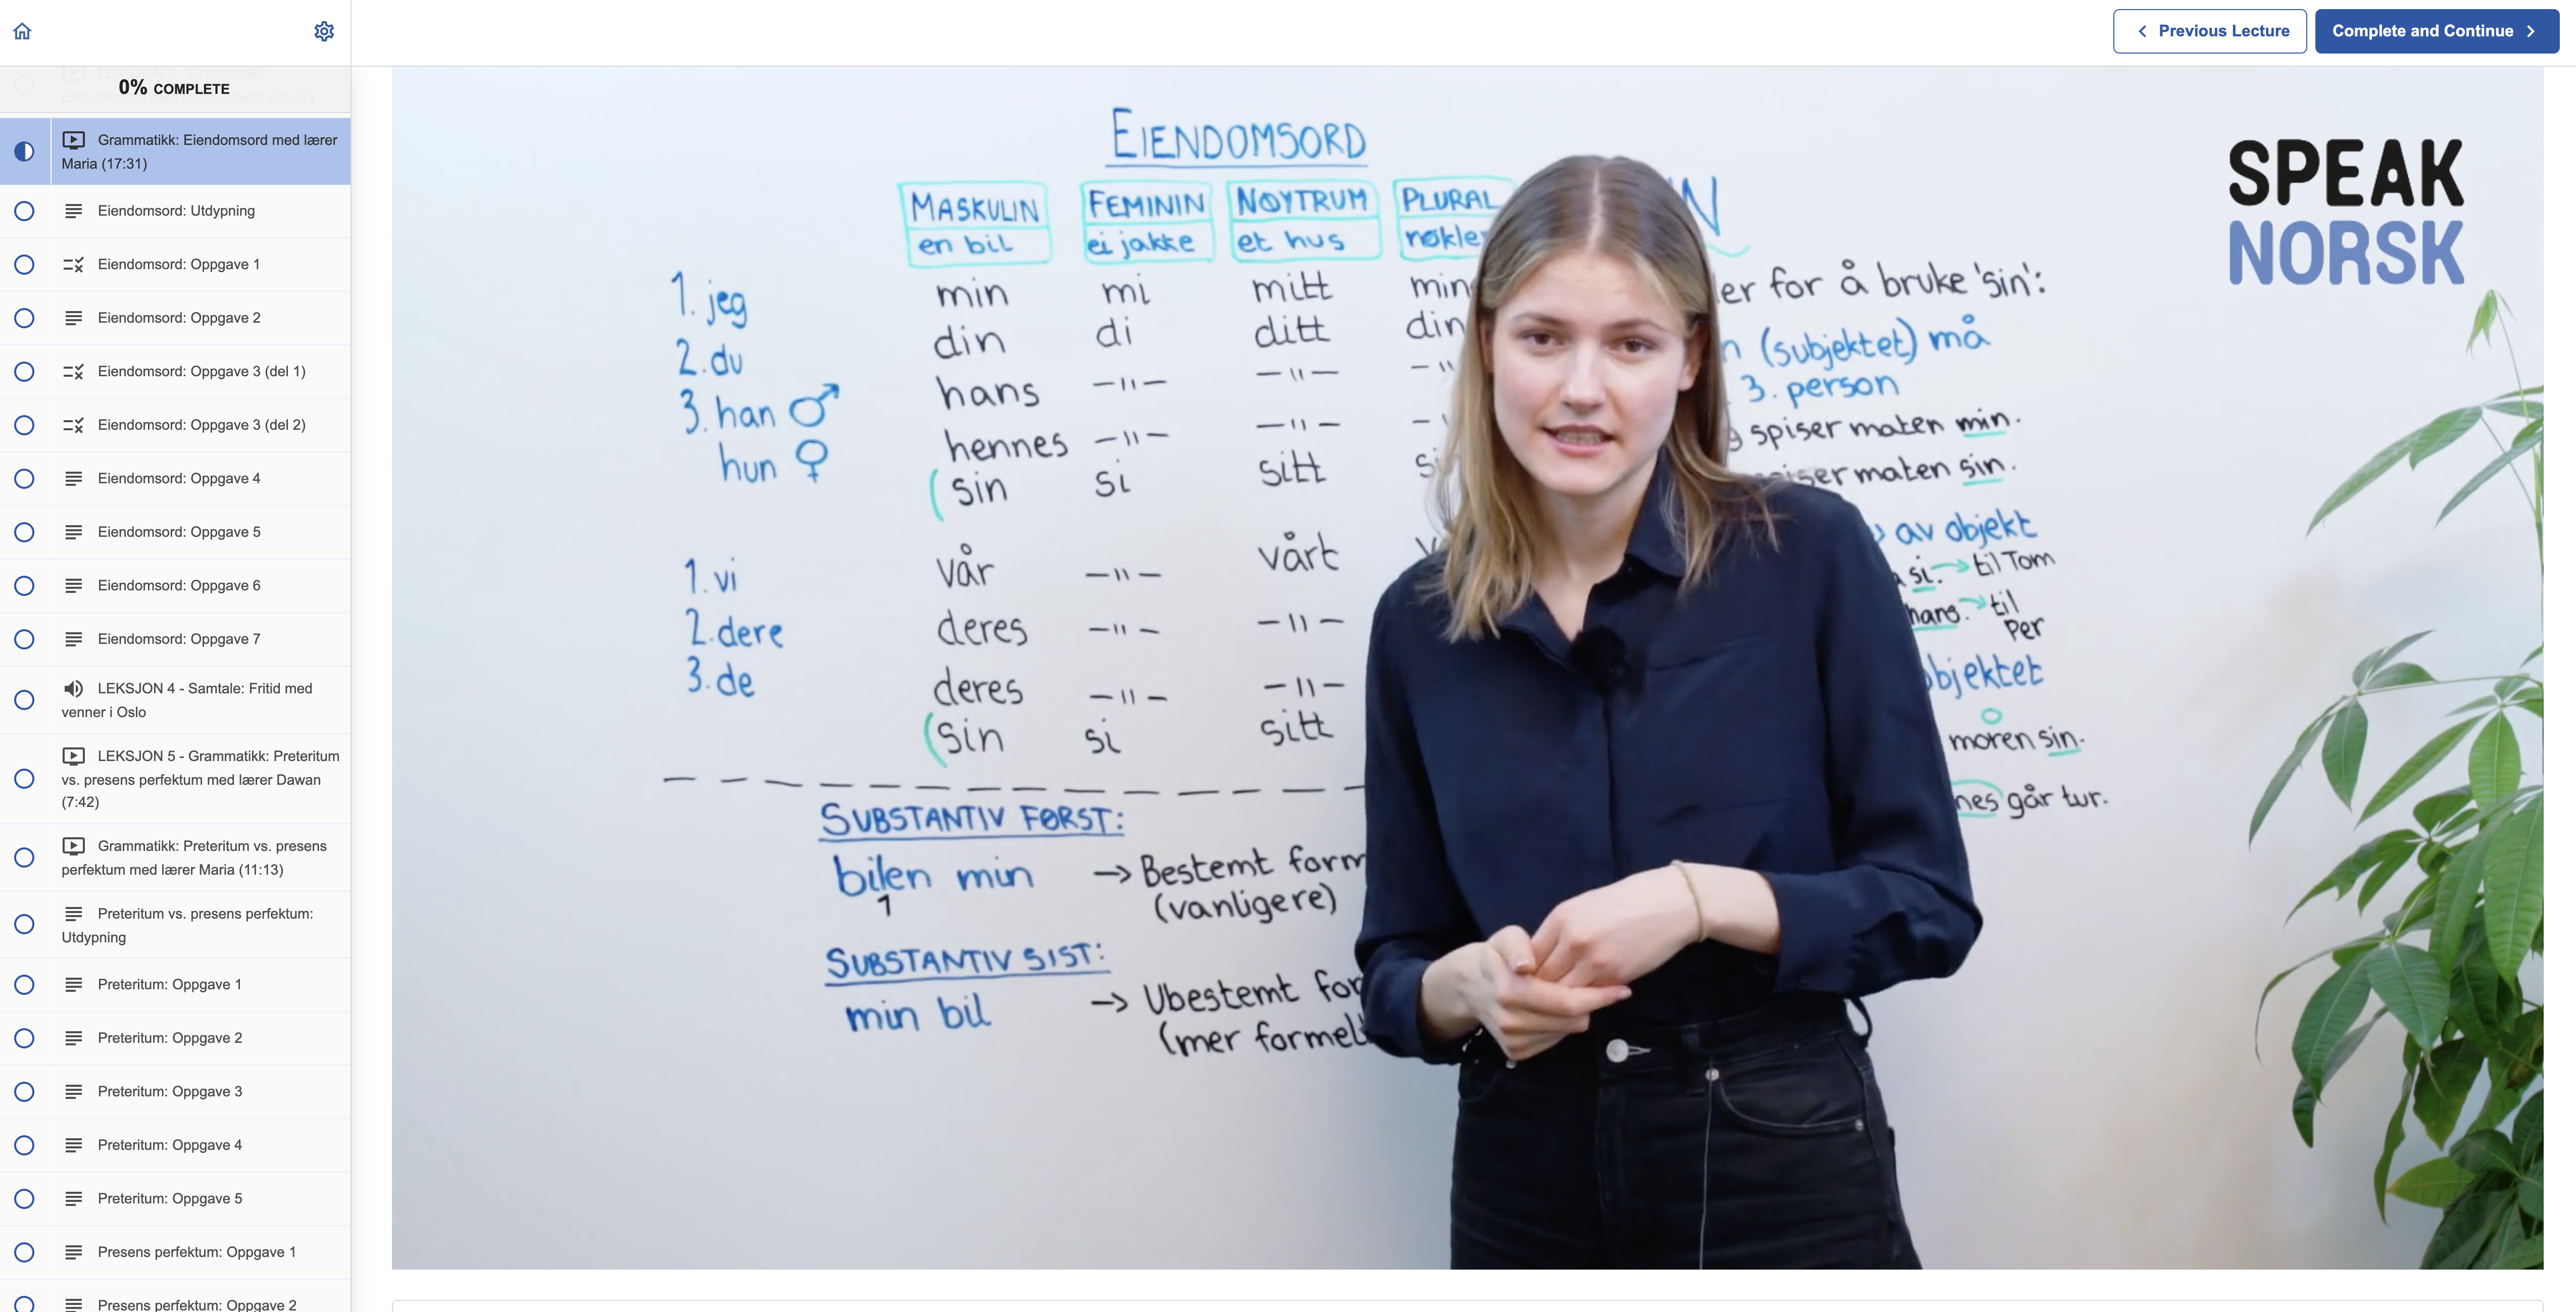 Previous Lecture
Complete and Continue
0% COMPLETE
Grammatikk: Eiendomsord med lærer
Maria (17:31)
Eiendomsord: Utdypning
Eiendomsord: Oppgave 1
Eiendomsord: Oppgave 2
Eiendomsord: Oppgave 3 (del 1)
Eiendomsord: Oppgave 3 (del 2)
Eiendomsord: Oppgave 4
Eiendomsord: Oppgave 5
Eiendomsord: Oppgave 6
Eiendomsord: Oppgave 7
LEKSJON 4 - Samtale: Fritid med
venner i Oslo
LEKSJON 5 - Grammatikk: Preteritum
vs. presens perfektum med lærer Dawan
(7:42)
Grammatikk: Preteritum vs. presens
perfektum med lærer Maria (11:13)
Preteritum vs. presens perfektum:
Utdypning
Preteritum: Oppgave 1
Preteritum: Oppgave 2
Preteritum: Oppgave 3
Preteritum: Oppgave 4
Preteritum: Oppgave 5
Presens perfektum: Oppgave 1
Presens perfektum: Oppgave 2
EIENDOMSORD
MASKULIN FEMININ NØYTRUM PLURAL
en bil ei jakke et hus
1. jeg min mi mitt
2. du din di ditt
3. han ♂ hans -"- -"-
hun ♀ hennes -"- -"-
(sin si sitt
1. vi vår -"- vårt
2. dere deres -"- -"-
3. de deres -"- -"-
(sin si sitt
SUBSTANTIV FØRST:
bilen min → Bestemt
1 (vanligere)
SUBSTANTIV SIST:
min bil → Ubestemt
(mer
for å bruke 'sin':
(subjektet) må
3. person
spiser maten min.
maten sin.
av objekt
si. → til Tom
hans. → til
Per
moren sin.
går tur.
SPEAK
NORSK